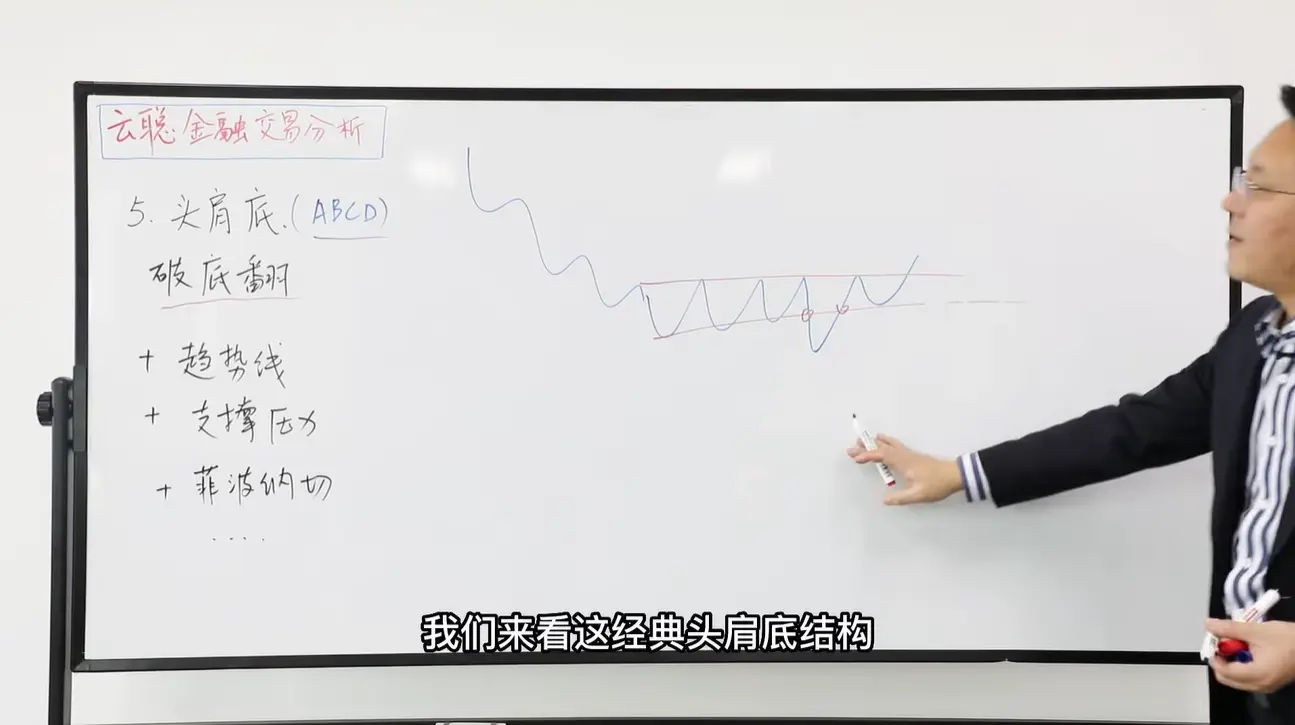 云聪金融交易分析
5. 头肩底.(ABCD)
破底翻
+ 趋势线
+ 支撑压力
+ 菲波纳切
....
我们来看这经典头肩底结构